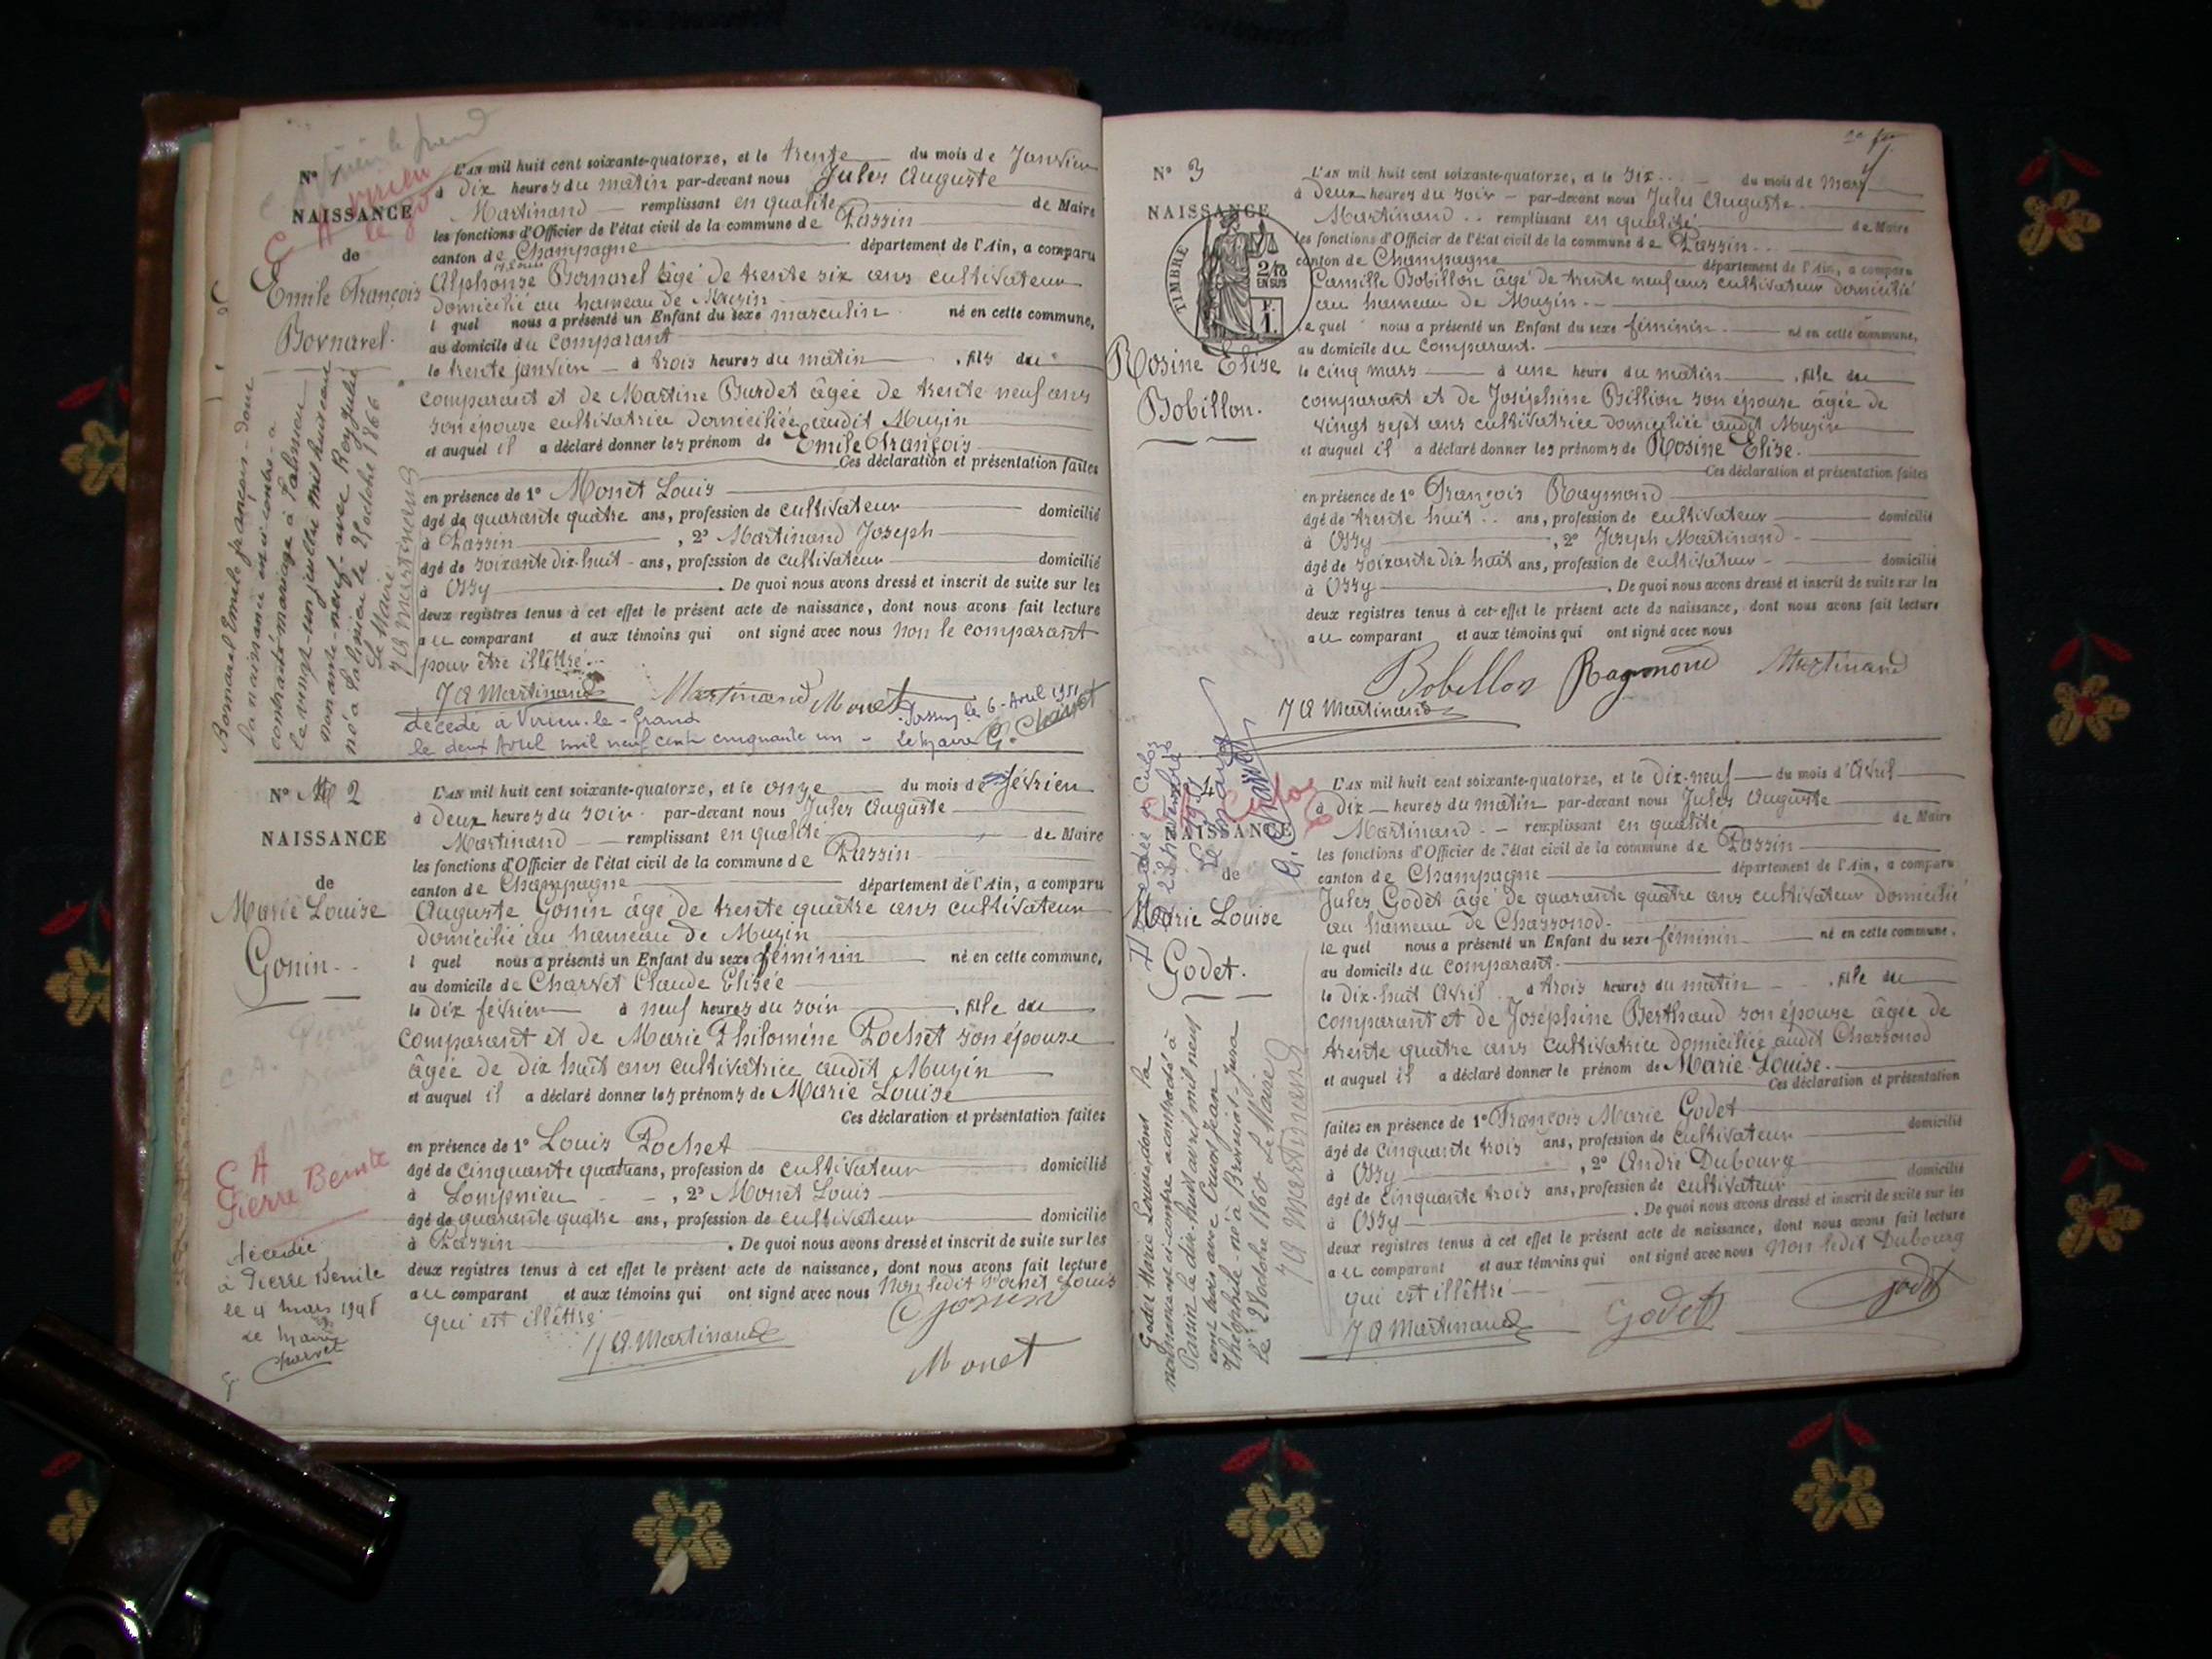 Nº 1
NAISSANCE
de
Emile François
Bornarel.
L'AN mil huit cent soixante-quatorze, et le trente du mois de Janvier
à dix heures du matin par-devant nous Jules Auguste
Martinand remplissant en qualité de Maire
les fonctions d'Officier de l'état civil de la commune de Passin
canton de Champagne département de l'Ain, a comparu
Alphonse Bornarel âgé de trente six ans cultivateur
domicilié au hameau de Muzin
l quel nous a présenté un Enfant du sexe masculin né en cette commune,
au domicile du comparant
le trente janvier à trois heures du matin, fils du
comparant et de Martine Burdet âgée de trente neuf ans
son épouse cultivatrice domiciliée audit Muzin
et auquel il a déclaré donner les prénom de Emile François
Ces déclaration et présentation faites
en présence de 1º Monet Louis
âgé de quarante quatre ans, profession de cultivateur domicilié
à Passin, 2º Martinand Joseph
âgé de soixante dix-huit ans, profession de cultivateur domicilié
à Ossy. De quoi nous avons dressé et inscrit de suite sur les
deux registres tenus à cet effet le présent acte de naissance, dont nous avons fait lecture
au comparant et aux témoins qui ont signé avec nous non le comparant
pour être illettré.
J A Martinand Martinand Monet
décédé à Virieu-le-Grand
le deux Avril mil neuf cent cinquante un
Passin le 6 Avril 1951
Le Maire G. Charvet
Bornarel Emile françois dont
la naissance est ci-contre a
contracté mariage à
le vingt-un juillet mil huit cent
nonante-neuf avec Rey Julie
née à le 25 octobre 1866
Le Maire
J A Martinand
Nº 2
NAISSANCE
de
Marie Louise
Gonin.
L'AN mil huit cent soixante-quatorze, et le onze du mois de février
à deux heures du soir par-devant nous Jules Auguste
Martinand remplissant en qualité de Maire
les fonctions d'Officier de l'état civil de la commune de Passin
canton de Champagne département de l'Ain, a comparu
Auguste Gonin âgé de trente quatre ans cultivateur
domicilié au hameau de Muzin
l quel nous a présenté un Enfant du sexe féminin né en cette commune,
au domicile de Charvet Claude Elisée
le dix février à neuf heures du soir, fille du
comparant et de Marie Philomène Pochet son épouse
âgée de dix huit ans cultivatrice audit Muzin
et auquel il a déclaré donner les prénoms de Marie Louise
Ces déclaration et présentation faites
en présence de 1º Louis Pochet
âgé de cinquante quatre ans, profession de cultivateur domicilié
à Lompnieu, 2º Monet Louis
âgé de quarante quatre ans, profession de cultivateur domicilié
à Passin. De quoi nous avons dressé et inscrit de suite sur les
deux registres tenus à cet effet le présent acte de naissance, dont nous avons fait lecture
au comparant et aux témoins qui ont signé avec nous Non ledit Pochet Louis
qui est illettré
J A Martinand Gonin
Monet
C A
Pierre Benite
décédée
à Pierre Benite
le 4 mars 1948
Le Maire
Charvet
Nº 3
NAISSANCE
TIMBRE
2/10
EN SUS
F.
1.
Rosine Elise
Bobillon.
L'AN mil huit cent soixante-quatorze, et le six du mois de Mars
à deux heures du soir par-devant nous Jules Auguste
Martinand remplissant en qualité de Maire
les fonctions d'Officier de l'état civil de la commune de Passin
canton de Champagne département de l'Ain, a comparu
Camille Bobillon âgé de trente neuf ans cultivateur domicilié
au hameau de Muzin.
le quel nous a présenté un Enfant du sexe féminin né en cette commune,
au domicile du comparant.
le cinq mars à une heure du matin, fille du
comparant et de Joséphine Billion son épouse âgée de
vingt sept ans cultivatrice domiciliée audit Muzin
et auquel il a déclaré donner les prénoms de Rosine Elise.
Ces déclaration et présentation faites
en présence de 1º François Raymond
âgé de trente huit ans, profession de cultivateur domicilié
à Ossy, 2º Joseph Martinand
âgé de soixante dix huit ans, profession de cultivateur domicilié
à Ossy. De quoi nous avons dressé et inscrit de suite sur les
deux registres tenus à cet effet le présent acte de naissance, dont nous avons fait lecture
au comparant et aux témoins qui ont signé avec nous
Bobillon Raymond Martinand
J A Martinand
4
NAISSANCE
de
Marie Louise
Godet.
L'AN mil huit cent soixante-quatorze, et le dix-neuf du mois d'Avril
à dix heures du matin par-devant nous Jules Auguste
Martinand remplissant en qualité de Maire
les fonctions d'Officier de l'état civil de la commune de Passin
canton de Champagne département de l'Ain, a comparu
Jules Godet âgé de quarante quatre ans cultivateur domicilié
au hameau de Chassonod.
le quel nous a présenté un Enfant du sexe féminin né en cette commune,
au domicile du comparant.
le dix-huit Avril à trois heures du matin, fille du
comparant et de Joséphine Berthaud son épouse âgée de
trente quatre ans cultivatrice domiciliée audit Chassonod
et auquel il a déclaré donner le prénom de Marie Louise.
Ces déclaration et présentation
faites en présence de 1º François Marie Godet
âgé de cinquante trois ans, profession de cultivateur domicilié
à Ossy, 2º André Dubourg
âgé de cinquante trois ans, profession de cultivateur domicilié
à Ossy. De quoi nous avons dressé et inscrit de suite sur les
deux registres tenus à cet effet le présent acte de naissance, dont nous avons fait lecture
au comparant et aux témoins qui ont signé avec nous Non ledit Dubourg
qui est illettré
J A Martinand Godet Godet
Godet Marie Louise, dont la
naissance ci-contre a contracté à
Passin le dix-huit avril mil neuf
cent trois avec
Théophile né à Jura
le 28 octobre 1860 Le Maire
J A Martinand